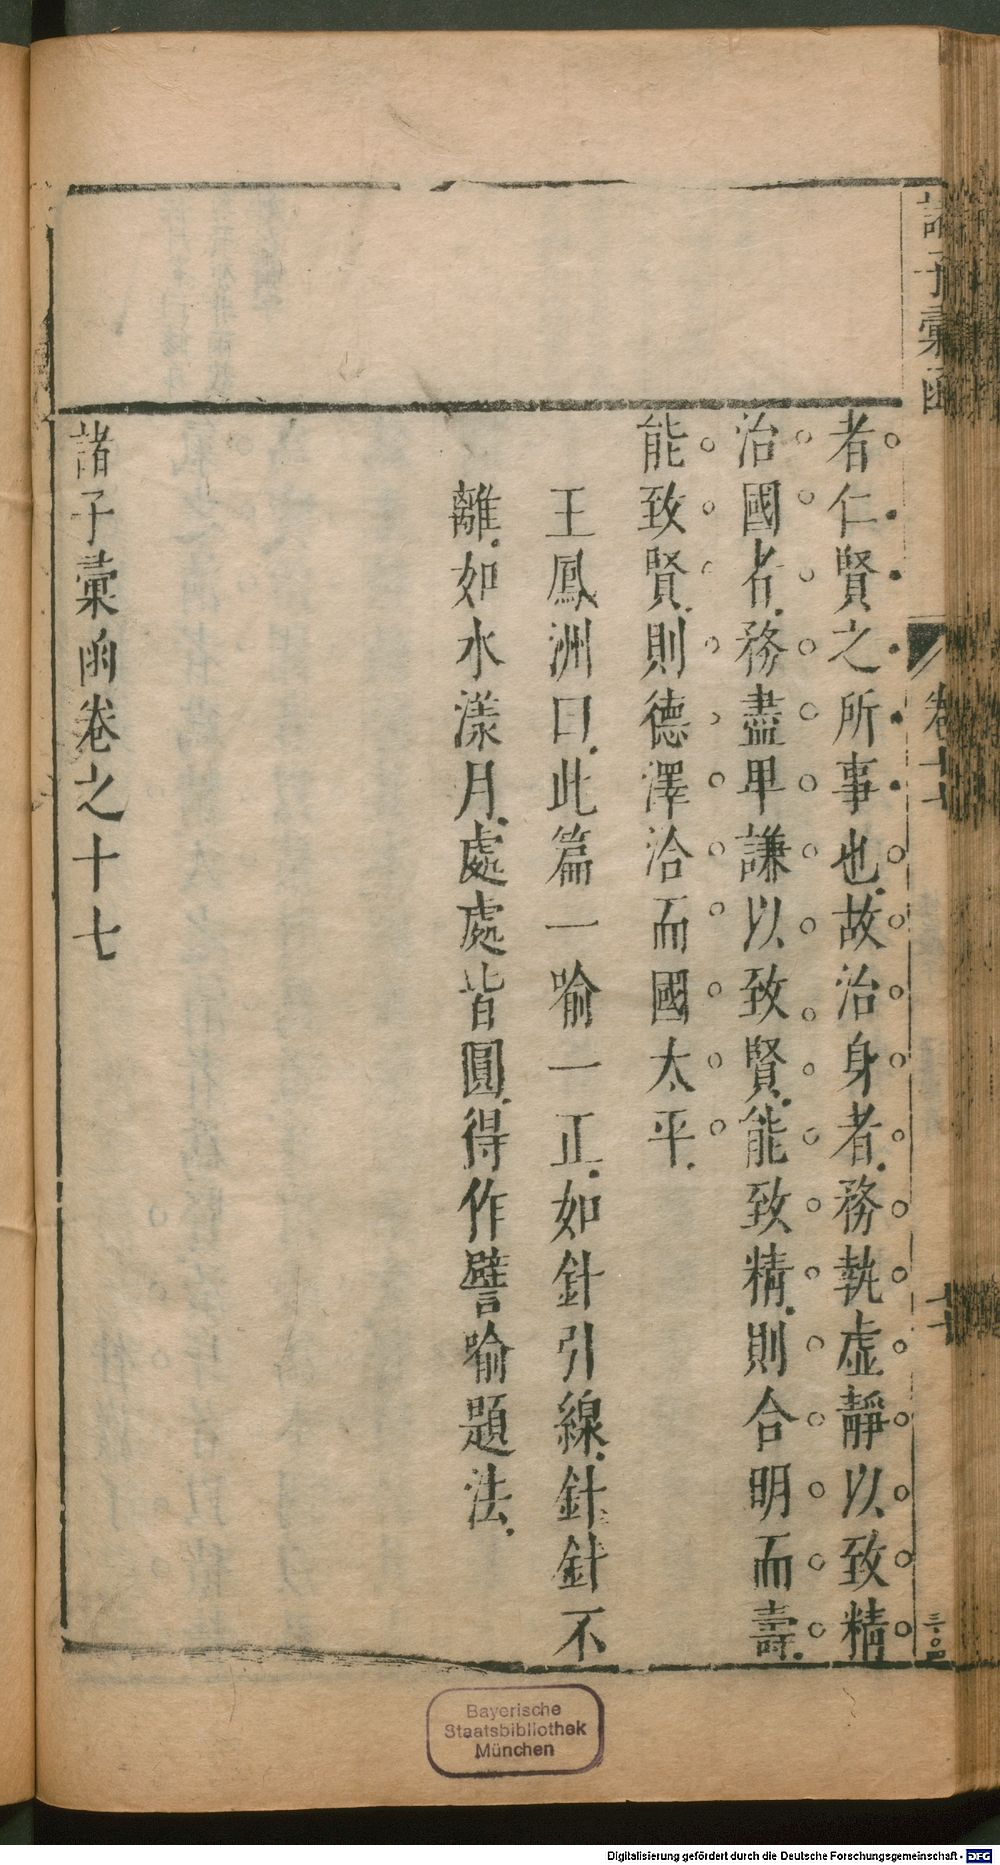 諸子彙函
卷十七
者仁賢之所事也故治身者務執虛靜以致精
治國者務盡卑謙以致賢能致精則合明而壽
能致賢則德澤洽而國太平
王鳳洲曰此篇一喻一正如針引線針針不
離如水漾月處處皆圓得作譬喻題法
諸子彙函卷之十七
Bayerische
Staatsbibliothek
München
Digitalisierung gefördert durch die Deutsche Forschungsgemeinschaft - DFG